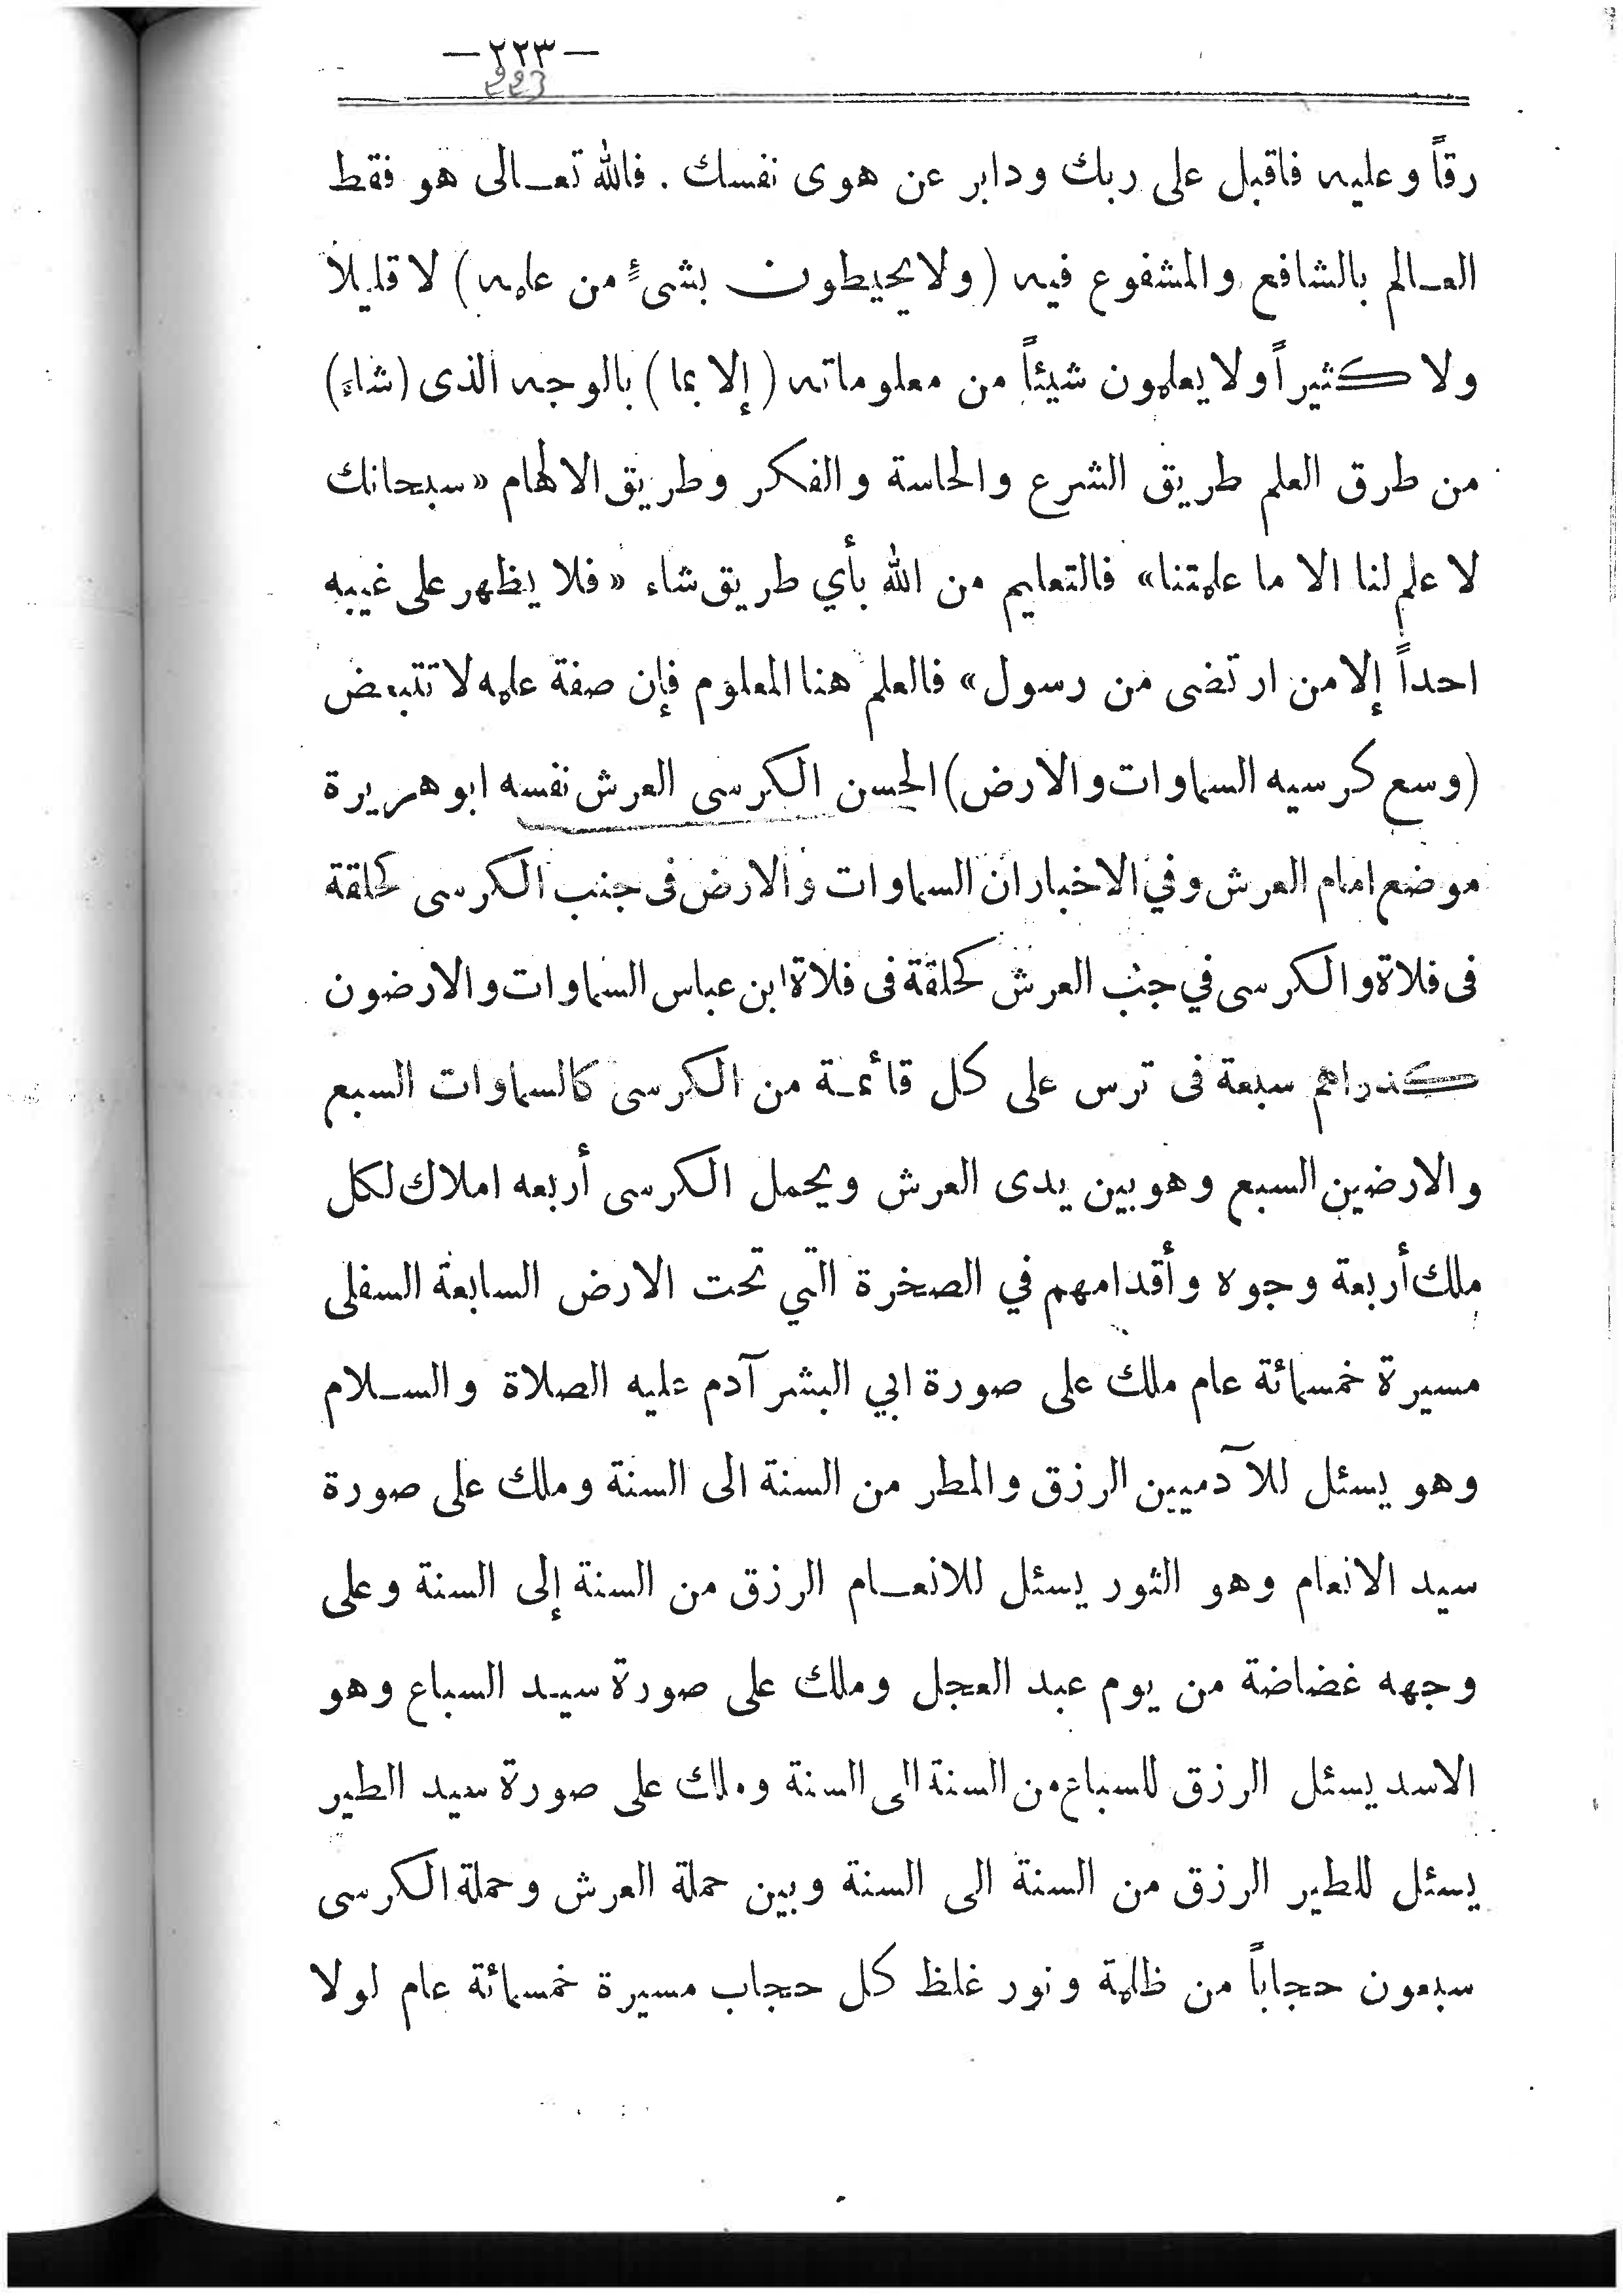 — ٢٢٣ —
223
رقاً وعليه فاقبل على ربك ودابر عن هوى نفسك . فالله تعـالى هو فقط
العـالم بالشافع والمشفوع فيه ( ولا يحيطون بشىءٍ من علمه ) لا قليلاً
ولا كثيراً ولا يعلمون شيئاً من معلوماته ( إلا بما ) بالوجه الذى (شاءَ)
من طرق العلم طريق الشرع والحاسة والفكر وطريق الالهام «سبحانك
لا علم لنا الا ما علمتنا» فالتعليم من الله بأي طريق شاء «فلا يظهر على غيبه
احداً إلا من ارتضى من رسول» فالعلم هنا المعلوم فإن صفة علمه لا تتبعض
(وسع كرسيه السماوات والارض) الحسن الكرسى العرش نفسه ابو هريرة
موضع امام العرش وفي الاخبار ان السماوات والارض فى جنب الكرسى كحلقة
فى فلاة والكرسى في جنب العرش كحلقة فى فلاة ابن عباس السماوات والارضون
كدراهم سبعة فى ترس على كل قائمـة من الكرسى كالسماوات السبع
والارضين السبع وهو بين يدى العرش ويحمل الكرسى أربعه املاك لكل
ملك أربعة وجوه وأقدامهم في الصخرة التي تحت الارض السابعة السفلى
مسيرة خمسمائة عام ملك على صورة ابي البشر آدم عليه الصلاة والسـلام
وهو يسئل للآدميين الرزق والمطر من السنة الى السنة وملك على صورة
سيد الانعام وهو الثور يسئل للانعـام الرزق من السنة إلى السنة وعلى
وجهه غضاضة من يوم عبد العجل وملك على صورة سيـد السباع وهو
الاسد يسئل الرزق للسباع من السنة الى السنة وملك على صورة سيد الطير
يسئل للطير الرزق من السنة الى السنة وبين حملة العرش وحملة الكرسى
سبعون حجاباً من ظلمة ونور غلظ كل حجاب مسيرة خمسمائة عام لولا